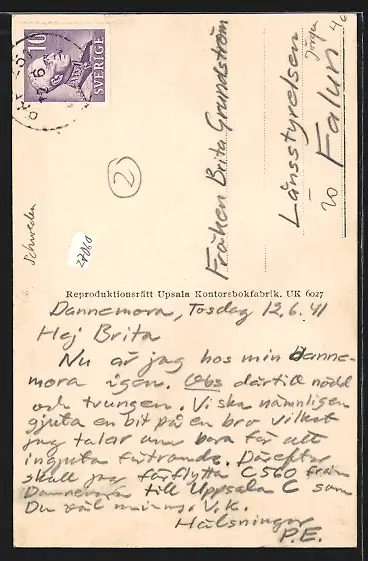 10
SVERIGE
12.6
Fröken Brita Grundström
Länsstyrelsen
Falun
20
40
2
Schweden
27060
Reproduktionsrätt Upsala Kontorsbokfabrik. UK 6027
Dannemora, Torsdag 12.6.41
Hej Brita
Nu är jag hos min Danne-
mora igen. Obs därtill nödd
och tvungen. Vi ska nämligen
gjuta en bit på en bro vilket
jag talar om bara för att
ingjuta förtroende. Därefter
skall jag förflytta C560 från
Dannemora till Uppsala C som
Du väl minns. V.k.
Hälsningar
P.E.